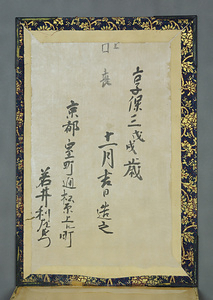 享保三戊戌歳
十一月吉日造之
京都室町通松原上ル町
若井利左衛門